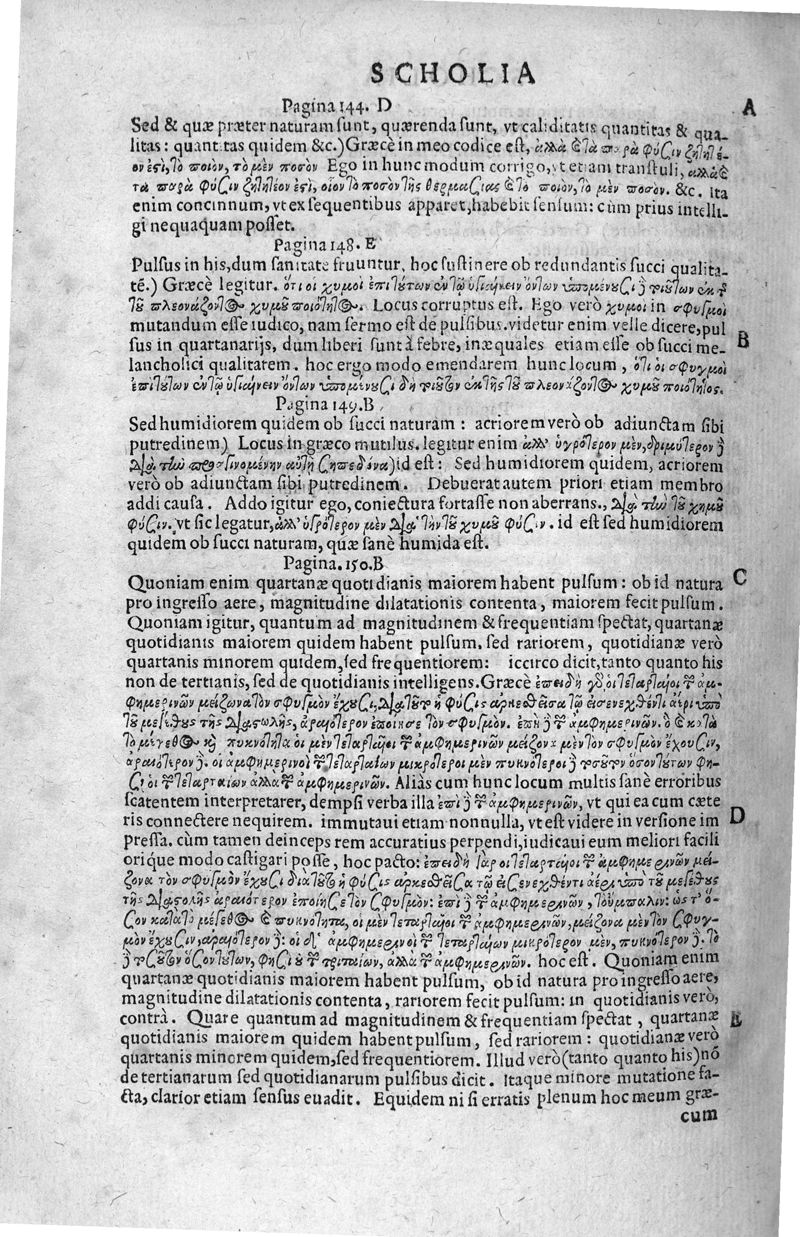 SCHOLIA
Pagina 144. D
A
Sed & quæ præter naturam sunt, quærenda sunt, vt caliditatis quantitas & qua-
litas: quantitas quidem &c.) Græcè in meo codice est, ἀλλὰ ϗ τὰ παρὰ φύσιν ζητητέ-
ον ἐςὶ, τὸ ποιὸν, τὸ μὲν ποσὸν Ego in hunc modum corrigo, vt etiam transtuli, ἀλλὰ ϗ
τὰ παρὰ φύσιν ζητητέον ἐςὶ, οἷον τὸ ποσὸν τῆς θερμασίας ϗ τὸ ποιὸν, τὸ μὲν ποσὸν. &c. Ita
enim concinnum, vt ex sequentibus apparet, habebit sensum: cùm prius intelli-
gi nequaquam posset.
Pagina 148. E
Pulsus in his, dum sanitate fruuntur, hoc sustinere ob redundantis succi qualita-
tē.) Græcè legitur. ὅτι οἱ χυμοὶ ἐπὶ τούτων ἐν τῷ ὑγιαίνειν ὄντων ὑπομένουσι
τοῦ πλεονάζοντος χυμοῦ ποιότητος. Locus corruptus est. Ego verò χυμοὶ in σφυγμοὶ
mutandum esse iudico, nam sermo est de pulsibus. videtur enim velle dicere, pul
B
sus in quartanarijs, dum liberi sunt à febre, inæquales etiam esse ob succi me-
lancholici qualitatem. hoc ergo modo emendarem hunc locum, ὅτι οἱ σφυγμοὶ
ἐπὶ τούτων ἐν τῷ ὑγιαίνειν ὄντων ὑπομένουσι δὴ τοῦτον ἐκ τῆς τοῦ πλεονάζοντος χυμοῦ ποιότητος.
Pagina 149. B
Sed humidiorem quidem ob succi naturam: acriorem verò ob adiunctam sibi
putredinem) Locus in græco mutilus. legitur enim ἀλλ' ὑγρότερον μὲν, δριμύτερον δὲ
διὰ τὴν προσγινομένην αὐτῇ σηπεδόνα) id est: Sed humidiorem quidem, acriorem
verò ob adiunctam sibi putredinem. Debuerat autem priori etiam membro
addi causa. Addo igitur ego, coniectura fortasse non aberrans., διὰ τὴν τοῦ χυμοῦ
φύσιν. vt sic legatur, ἀλλ' ὑγρότερον μὲν διὰ τὴν τοῦ χυμοῦ φύσιν. id est sed humidiorem
quidem ob succi naturam, quæ sanè humida est.
Pagina. 150. B
C
Quoniam enim quartanæ quotidianis maiorem habent pulsum: ob id natura
pro ingresso aere, magnitudine dilatationis contenta, maiorem fecit pulsum.
Quoniam igitur, quantum ad magnitudinem & frequentiam spectat, quartanæ
quotidianis maiorem quidem habent pulsum. sed rariorem, quotidianæ verò
quartanis minorem quidem, sed frequentiorem: iccirco dicit, tanto quanto his
non de tertianis, sed de quotidianis intelligens. Græcè ἐπειδὴ γὸ οἱ τεταρταῖοι τῶν ἀμ-
φημερινῶν μείζονα τὸν σφυγμὸν ἔχουσι, διὰ τοῦτο ἡ φύσις ἀρκεσθεῖσα τῷ εἰσενεχθέντι ἀέρι ὑπὸ
τοῦ μεγέθους τῆς διαςολῆς, ἀραιότερον ἐποίησε τὸν σφυγμὸν. ἐπὶ δὲ τῶν ἀμφημερινῶν. ὁ ϗ κατὰ
τὸ μέγεθος ϗ πυκνότητα οἱ μὲν τεταρταῖοι τῶν ἀμφημερινῶν μείζονα μὲν τὸν σφυγμὸν ἔχουσιν,
ἀραιότερον δὲ. οἱ ἀμφημερινοὶ τῶν τεταρταίων μικρότεροι μὲν πυκνότεροι δὲ τοσοῦτον ὅσον τούτων φη-
σὶ, οἱ τῶν τεταρταίων ἀλλὰ τῶν ἀμφημερινῶν. Aliàs cum hunc locum multis sanè erroribus
scatentem interpretarer, dempsi verba illa ἐπὶ δὲ τῶν ἀμφημερινῶν, vt qui ea cum cæte
D
ris connectere nequirem. immutaui etiam nonnulla, vt est videre in versione im
pressa. cùm tamen deinceps rem accuratius perpendi, iudicaui eum meliori facili
orique modo castigari posse, hoc pacto: ἐπειδὴ γὰρ οἱ τεταρταῖοι τῶν ἀμφημερινῶν μεί-
ζονα τὸν σφυγμὸν ἔχουσι διὰ τοῦτο ἡ φύσις ἀρκεσθεῖσα τῷ εἰσενεχθέντι ἀέρι ὑπὸ τοῦ μεγέθους
τῆς διαςολῆς ἀραιότερον ἐποίησε τὸν σφυγμὸν: ἐπὶ δὲ τῶν ἀμφημερινῶν, τοὔμπαλιν: ὡς τ' ὅ-
σον κατὰ τὸ μέγεθος ϗ πυκνότητα, οἱ μὲν τεταρταῖοι τῶν ἀμφημερινῶν, μείζονα μὲν τὸν σφυγ-
μὸν ἔχουσιν, ἀραιότερον δὲ: οἱ δ' ἀμφημερινοὶ τῶν τεταρταίων μικρότερον μὲν, πυκνότερον δὲ. τὸ
δὲ τοσοῦτον ὅσον τούτων, φησὶ οὐ τῶν τριταίων, ἀλλὰ τῶν ἀμφημερινῶν. hoc est. Quoniam enim
quartanæ quotidianis maiorem habent pulsum, ob id natura pro ingresso aere,
magnitudine dilatationis contenta, rariorem fecit pulsum: in quotidianis verò,
contrà. Quare quantum ad magnitudinem & frequentiam spectat, quartanæ
E
quotidianis maiorem quidem habent pulsum, sed rariorem: quotidianæ verò
quartanis minorem quidem, sed frequentiorem. Illud verò (tanto quanto his) nō
de tertianarum sed quotidianarum pulsibus dicit. Itaque minore mutatione fa-
cta, clarior etiam sensus euadit. Equidem ni si erratis plenum hoc meum græ-
cum